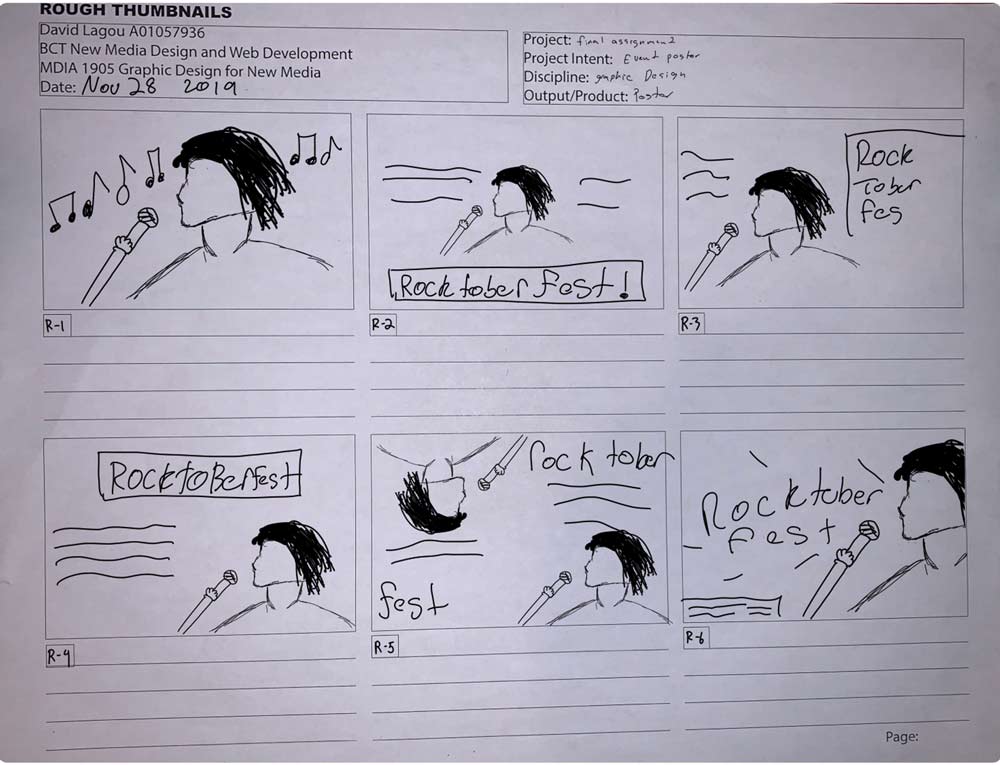 ROUGH THUMBNAILS
David Lagou A01057936
BCT New Media Design and Web Development
MDIA 1905 Graphic Design for New Media
Date: Nov 28 2019
Project: final assignment
Project Intent: Event poster
Discipline: graphic Design
Output/Product: Poster
R-1
Rocktober fest!
R-2
Rock
Tober
fes
R-3
RocktoBerfest
R-4
rock tober
fest
R-5
Rocktober
fest
R-6
Page: